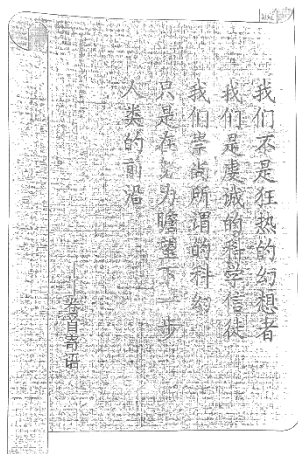 我们不是狂热的幻想者
我们是虔诚的科学信徒
我们崇尚所谓的科幻
只是在努力瞻望下一步
人类的前沿
——卷首寄语